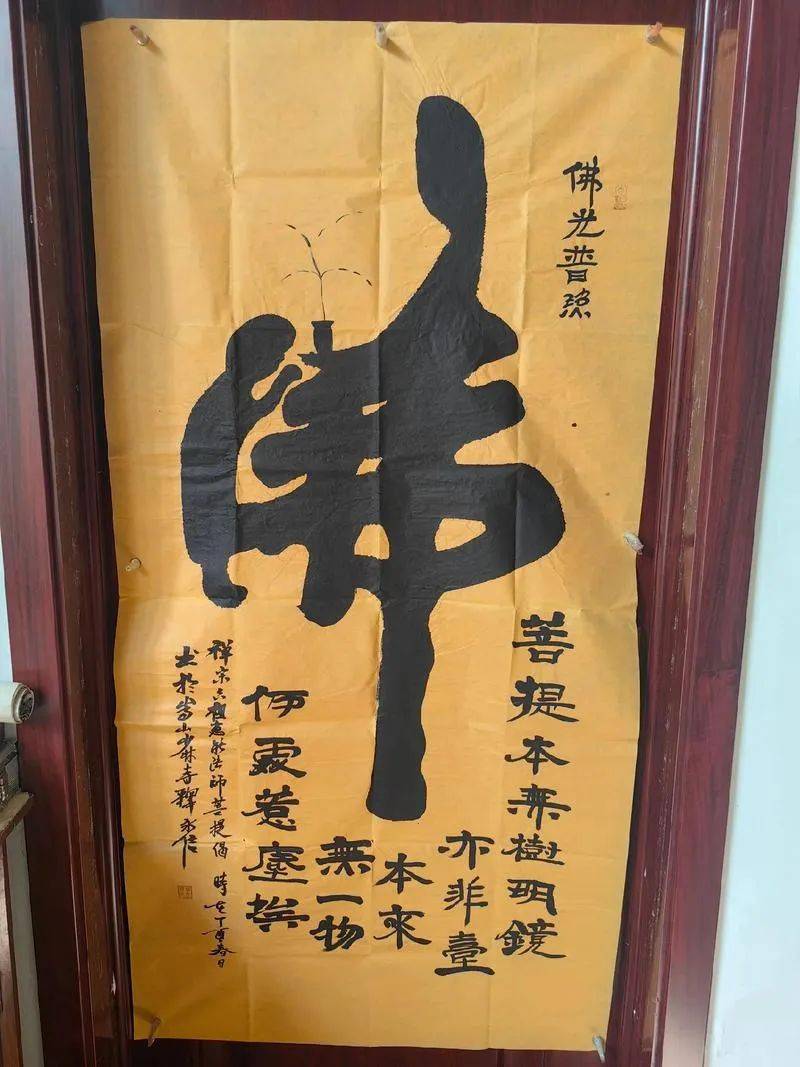 佛光普照
佛
菩提本無樹明鏡
亦非臺
本來
無一物
何處惹塵埃
禪宗六祖慧能法師菩提偈 時在丁酉春日
書於嵩山少林寺釋永信